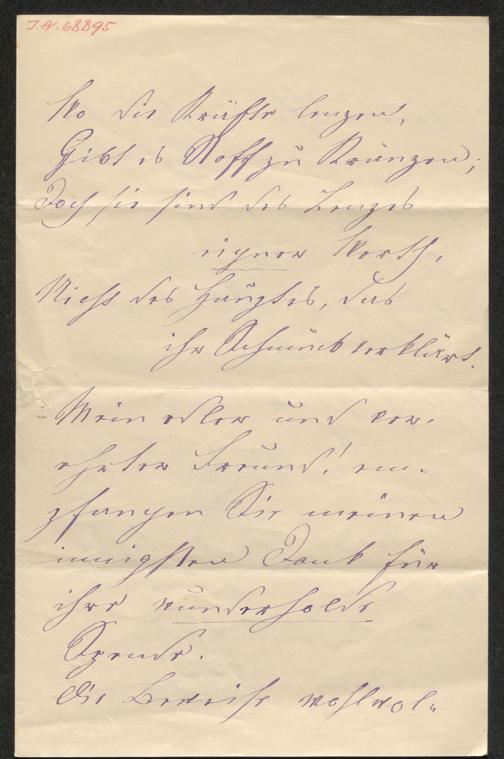 J.N. 68895
Wo die Kräfte lenzen,
Gibt es Stoff zu Kränzen;
Doch sie sind des Lenzes
eigner Werth,
Nicht des Hauptes, das
ihr Schmuck verklärt.
Mein edler und ver-
ehrter Freund! em-
pfangen Sie meinen
innigsten Dank für
ihre wunderholde
Spende.
Die Beweise wohlwol-